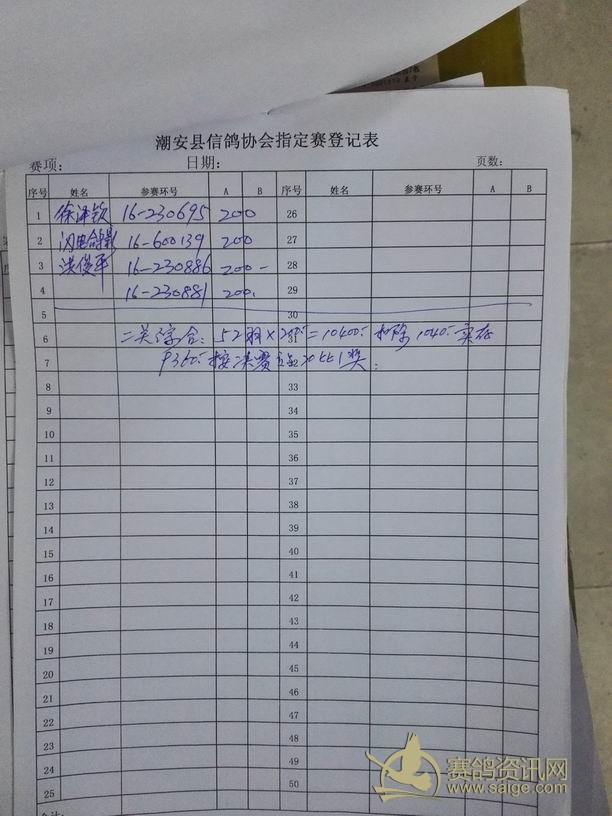 潮安县信鸽协会指定赛登记表
赛项: 日期: 页数:
序号 姓名 参赛环号 A B 序号 姓名 参赛环号 A B
1 徐泽钦 16-230695 200 26
2 闪电鸽 16-600139 200 27
3 洪俊平 16-230886 200- 28
4 16-230881 200. 29
5 30
6 二关综合: 52羽×200=10400 扣除1040 实存 31
7 9360 按决赛 1奖 32
8 33
9 34
10 35
11 36
12 37
13 38
14 39
15 40
16 41
17 42
18 43
19 44
20 45
21 46
22 47
23 48
24 49
25 50
赛鸽资讯网
www.saige.com